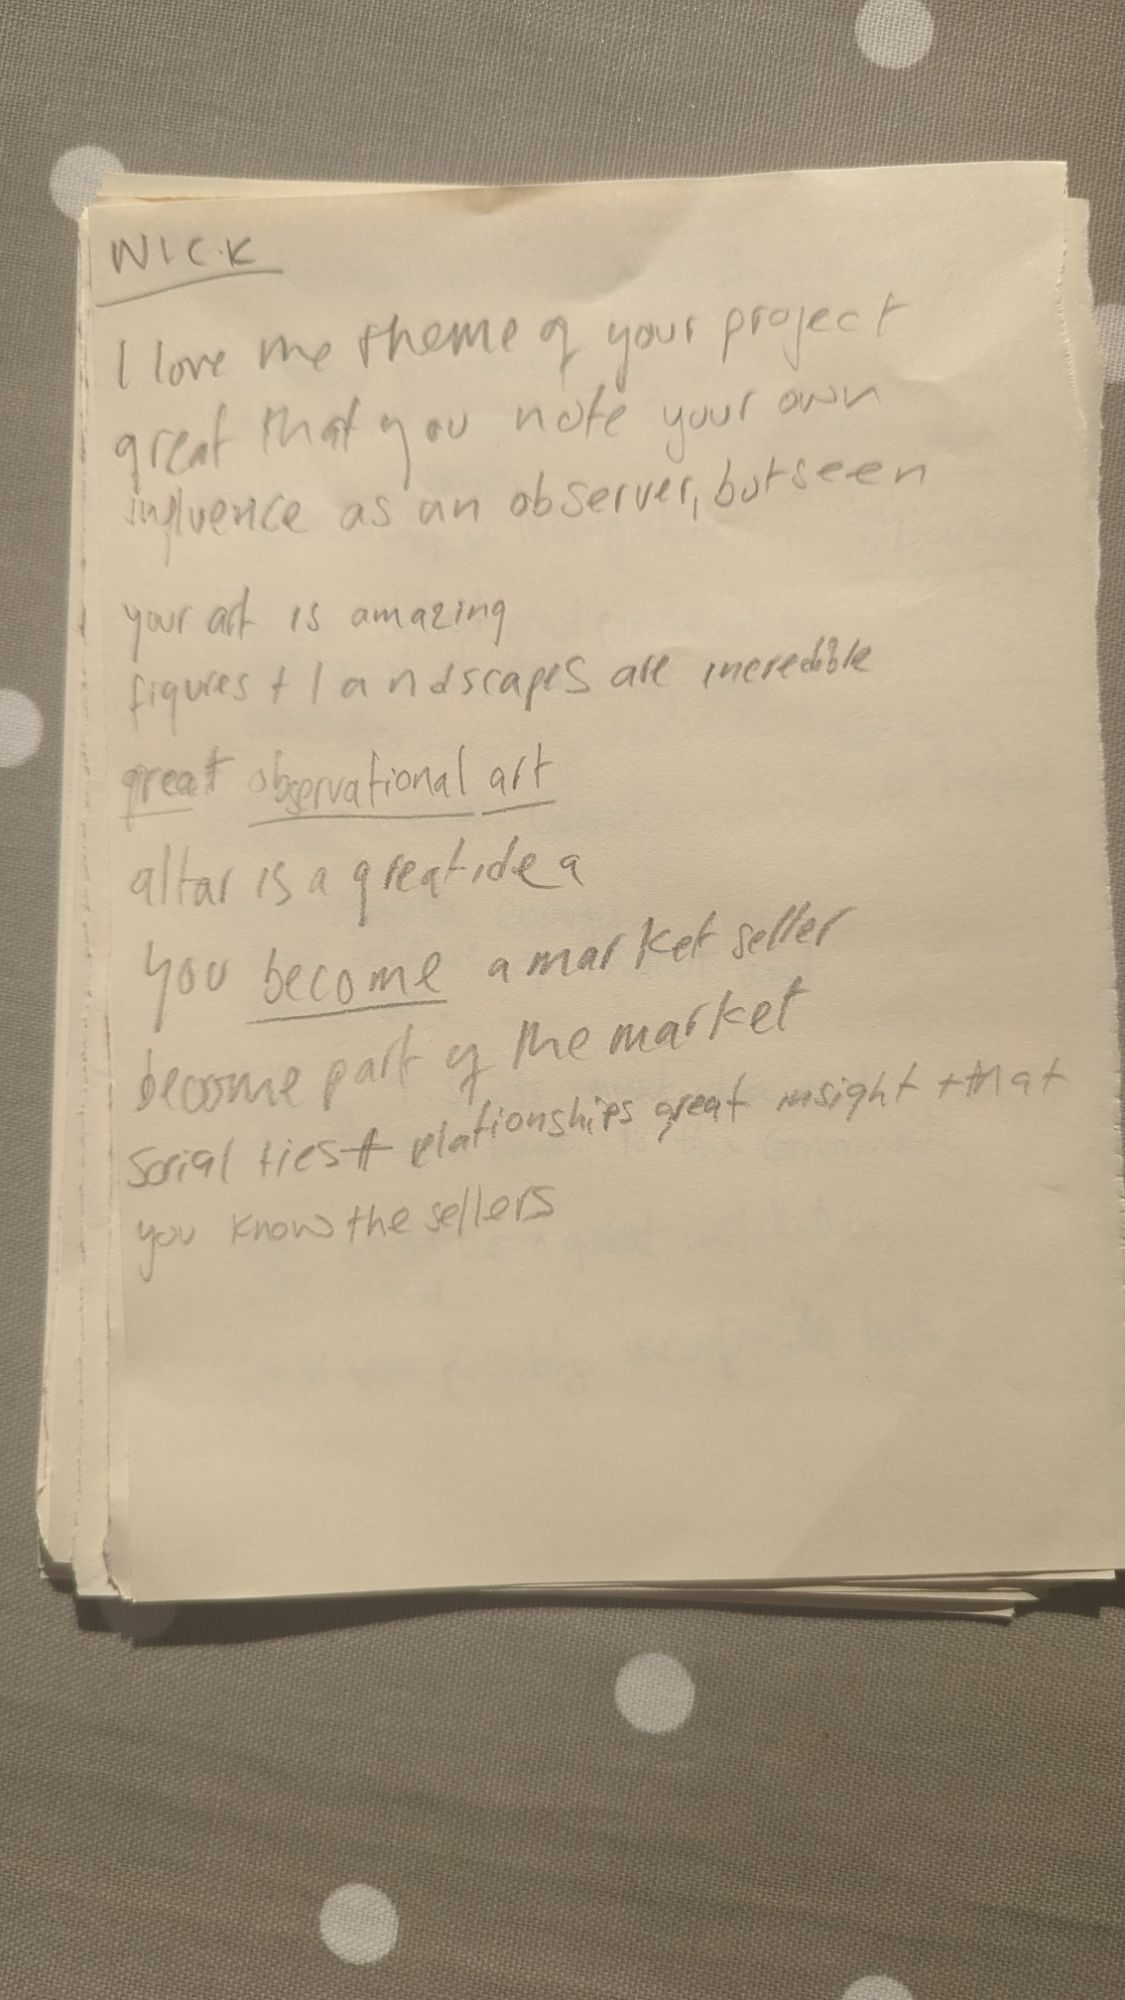 NICK
I love the theme of your project
great that you note your own
influence as an observer, but seen
your art is amazing
figures + landscapes are incredible
great observational art
altar is a great idea
you become a market seller
become part of the market
social ties + relationships great insight + that
you know the sellers